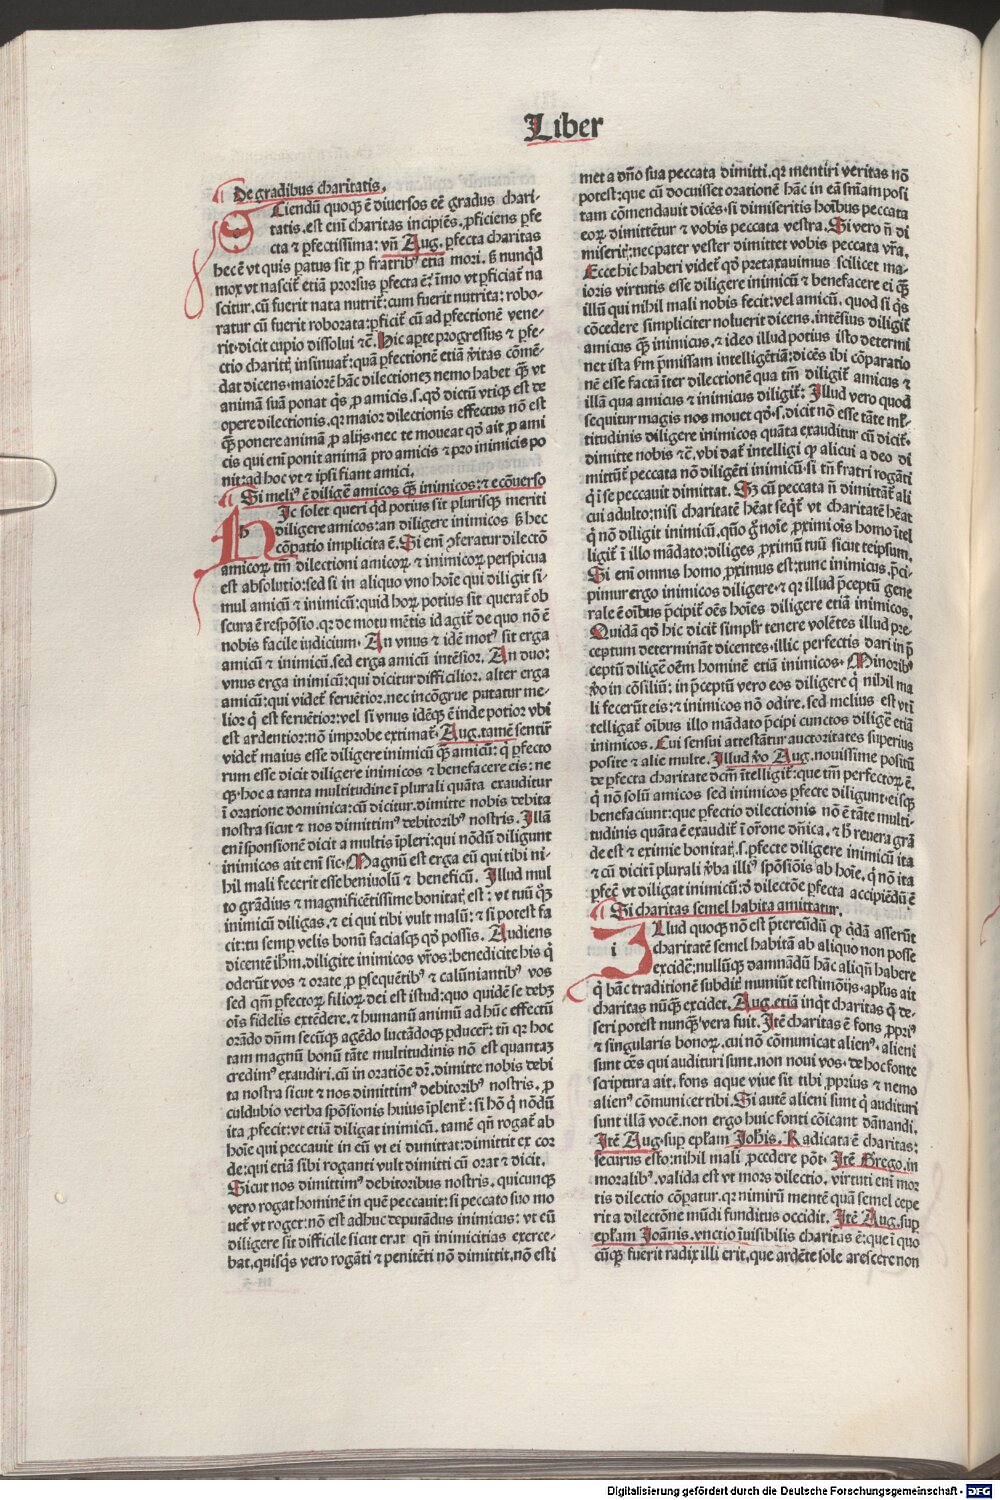 Liber
De gradibus charitatis.
Ciendū quoqꝫ ē diuersos eē gradus chari-
tatis. est em̄ charitas incipiēs. ꝓficiens ꝑfe
cta ⁊ ꝑfectissima: vn̄ Aug. ꝑfecta charitas
hec ē vt quis ꝑatus sit ꝓ fratribꝰ etiā mori. ß nunqͥd
mox vt nascit̄ etiā prorsus ꝑfecta ē: īmo vt ꝑficiat̄ na
scitur. cū fuerit nata nutrit̄: cum fuerit nutrita: robo-
ratur cū fuerit roborata: ꝑficit̄ cū ad ꝑfectionē vene-
rit. dicit cupio dissolui ⁊c̄. Hic aꝑte progressus ⁊ ꝑfe-
ctio charitꝭ insinuat̄: quā ꝑfectionē etiā v̄itas cōmē-
dat dicens. maiorē hāc dilectionez nemo habet qͣꝫ vt
animā suā ponat qͥs ꝓ amicis. s. qḋ dictū vtiqꝫ est de
opere dilectionis. qꝛ maior dilectionis effectus nō est
qͣꝫ ponere animā ꝓ alijs. nec te moueat qḋ ait ꝓ ami
cis qui em̄ ponit animā pro amicis ⁊ pro inimicis po
nit: ad hoc vt ⁊ ipsi fiant amici.
Si meliꝰ ē diligē amicos qͣꝫ inimicos: ⁊ ecōuerso
h
Ic solet queri qd̄ potius sit plurisqꝫ meriti
diligere amicos: an diligere inimicos ß hec
cōꝑatio implicita ē. Si em̄ ꝯferatur dilectō
amicoꝝ tm̄ dilectioni amicoꝝ ⁊ inimicoꝝ perspicua
est absolutio: sed si in aliquo vno hoīe qui diligit si-
mul amicū ⁊ inimicū: quid hoꝝ potius sit querat̄ ob
scura ē respōsio. qꝛ de motu mētis id agit̄ de quo nō ē
nobis facile iudicium. An vnus ⁊ idē motꝰ sit erga
amicū ⁊ inimicū. sed erga amicū intēsior. An duo:
vnus erga inimicū: qui dicitur difficilior. alter erga
amicū: qui videt̄ feruētior. nec incōgrue putatur me-
lior qͥ est feruētior: vel si vnus idēqꝫ ē inde potior vbi
est ardentior: nō improbe extimat̄. Aug. tamē sentir̄
videt̄ maius esse diligere inimicū qͣꝫ amicū: qꝛ ꝑfecto
rum esse dicit diligere inimicos ⁊ benefacere eis: ne
qꝫ. hoc a tanta multitudine ī plurali quāta exauditur
ī oratione dominica: cū dicitur. dimitte nobis debita
nostra sicut ⁊ nos dimittimꝰ debitoribꝰ nostris. Illā
em̄ sponsionē dicit a multis īpleri: qui nōdū diligunt
inimicos ait em̄ sic. Magnū est erga eū qui tibi ni-
hil mali fecerit esse beniuolū ⁊ beneficū. Illud mul
to grādius ⁊ magnificētissime bonitatꝭ est: vt tuū qͦꝫ
inimicū diligas. ⁊ ei qui tibi vult malū: ⁊ si potest fa
cit: tu semꝑ velis bonū faciasqꝫ qḋ possis. Audiens
dicentē ihm̄. diligite inimicos vr̄os: benedicite his qͥ
oderūt vos ⁊ orate ꝓ ꝑsequētibꝰ ⁊ calūniantibꝰ vos
sed qm̄ ꝑfectoꝝ filioꝝ dei est istud: quo quidē se debꝫ
oīs fidelis extēdere. ⁊ humanū animū ad hūc effectū
orādo dn̄m secūqꝫ agēdo luctādoqꝫ ꝑducer̄: tn̄ qꝛ hoc
tam magnū bonū tāte multitudinis nō est quantaꝫ
credimꝰ exaudiri. cū in oratiōe dꝛ. dimitte nobis debi
ta nostra sicut ⁊ nos dimittimꝰ debitoribꝰ nostris. ꝓ
culdubio verba spōsionis huius īplent̄: si hō qͥ nōdū
ita ꝓfecit: vt etiā diligat inimicū. tamē qn̄ rogat̄ ab
hoīe qui peccauit in eū vt ei dimittat: dimittit ex cor
de: qui etiā sibi roganti vult dimitti cū orat ⁊ dicit.
Sicut nos dimittimꝰ debitoribus nostris. quicunqꝫ
vero rogat hominē in quē peccauit: si peccato suo mo
uet̄ vt roget: nō est adhuc deputādus inimicus: vt eū
diligere sit difficile sicut erat qn̄ inimicitias exerce-
bat. quisqͥs vero rogāti ⁊ penitēti nō dimittit. nō esti
met a dn̄o sua peccata dimitti. qꝛ mentiri veritas nō
potest: que cū docuisset orationē hāc in eā sn̄iam posi
tam cōmendauit dicēs. si dimiseritis hoībus peccata
eoꝝ dimittētur ⁊ vobis peccata vestra. Si vero n̄ di
miseritꝭ: nec pater vester dimittet vobis peccata vr̄a.
Ecce hic haberi videt̄ qḋ pretaxauimus scilicet ma-
ioris virtutis esse diligere inimicū ⁊ benefacere ei qͣꝫ
illū qui nihil mali nobis fecit: vel amicū. quod si qͥs
cōcedere simpliciter noluerit dicens. intēsius diligit̄
amicus qͣꝫ inimicus. ⁊ ideo illud potius isto determi
net ista ẜm p̄missam intelligētiā: dicēs ibi cōꝑatio
nē esse factā īter dilectionē qua tm̄ diligit̄ amicus ⁊
illā qua amicus ⁊ inimicus diligit̄: Illud vero quod
sequitur magis nos mouet qḋ. s. dicit nō esse tāte ml̄-
titudinis diligere inimicos quāta exauditur cū dicit̄.
dimitte nobis ⁊c̄. vbi dat̄ intelligi qꝫ alicui a deo di
mittūt̄ peccata nō diligēti inimicū. si tn̄ fratri rogāti
qͥ ī se peccauit dimittat. Sꝫ cū peccata n̄ dimittāt̄ ali
cui adulto: nisi charitatē hēat seqͥt̄ vt charitatē hēat
qͥ nō diligit inimicū. quō ḡ noīe ꝓximi oīs homo ītel
ligit̄ ī illo mādato: diliges ꝓximū tuū sicut teipsum.
Si enī omnis homo ꝓximus est: tunc inimicus. p̄ci-
pimur ergo inimicos diligere. ⁊ qꝛ illud p̄ceptū gene
rale ē oībus p̄cipit̄ oēs hoīes diligere etiā inimicos.
Quidā qḋ hic dicit̄ simplꝛ tenere volētes illud pre-
ceptum determināt dicentes. illic perfectis dari in p̄
ceptū diligē oēm hominē etiā inimicos. Minoribꝰ
ṽo in cōsiliū: in p̄ceptū vero eos diligere qͥ nihil ma
li fecerūt eis: ⁊ inimicos nō odire. sed melius est vt ī
telligat̄ oībus illo mādato p̄cipi cunctos diligē etiā
inimicos. Cui sensui attestātur auctoritates superius
posite ⁊ alie multe. Illud ṽo Aug. nouissime positū
de ꝑfecta charitate dc̄m̄ ītelligit̄: que tm̄ perfectoꝝ ē.
qͥ nō solū amicos sed inimicos ꝑfecte diligunt. eisqꝫ
benefaciunt: que ꝑfectio dilectionis nō ē tāte multi-
tudinis quāta ē exaudit̄ ī or̄one dn̄ica. ⁊ ß reuera grā
de est ⁊ eximie bonitatꝭ. s. ꝑfecte diligere inimicū ita
⁊ cū dicit̄ ī plurali ṽba illiꝰ spōsiōis ab hoīe. qͥ nō ita
ꝑfecꝫ vt diligat inimicū: ꝺ̄ dilectōe ꝑfecta accipiēdū ē
Si charitas semel habita amittatur.
i
Llud quoqꝫ nō est p̄tereūdū qꝫ qͥdā asserūt
charitatē semel habitā ab aliquo non posse
excidē: nullūqꝫ damnādū hāc aliqn̄ habere
qͥ hāc traditionē subditꝭ muniūt testimōijs. apl̄us ait
charitas nūqꝫ excidet. Aug. etiā inqͥt charitas qͤ de-
seri potest nunqꝫ vera fuit. Itē charitas ē fons ꝓpriꝰ
⁊ singularis bonoꝝ. cui nō cōmunicat alienꝰ. alieni
sunt oēs qui audituri sunt. non noui vos. de hoc fonte
scriptura ait. fons aque viue sit tibi ꝓprius ⁊ nemo
alienꝰ cōmunicet tibi. Si autē alieni sunt qͥ audituri
sunt illā vocē. non ergo huic fonti cōicant dānandi.
Itē Aug. sup epl̄am Joh̄is. Radicata ē charitas:
securus esto: nihil mali ꝓcedere pōt. Itē Grego. in
moralibꝰ. valida est vt mors dilectio. virtuti em̄ mor
tis dilectio cōꝑatur. qꝛ nimirū mentē quā semel cepe
rit a dilectōne mūdi funditus occidit. Itē Aug. sup
epl̄am Joānis. vnctio īuisibilis charitas ē: que ī quo
cūqꝫ fuerit radix illi erit. que ardēte sole arescere non
Digitalisierung gefördert durch die Deutsche Forschungsgemeinschaft - DFG